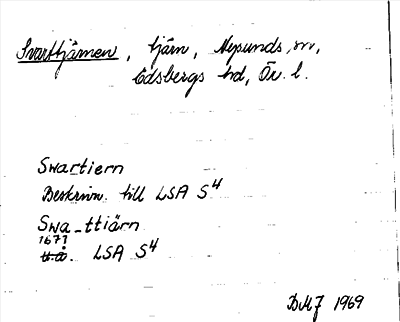 Svarttjärnen, tjärn, Nysunds sn,
Edsbergs hd, Ör. l.
Swartiern
Beskrivn. till LSA S4
Swa_ttiärn
1671
u.å. LSA S4
1969